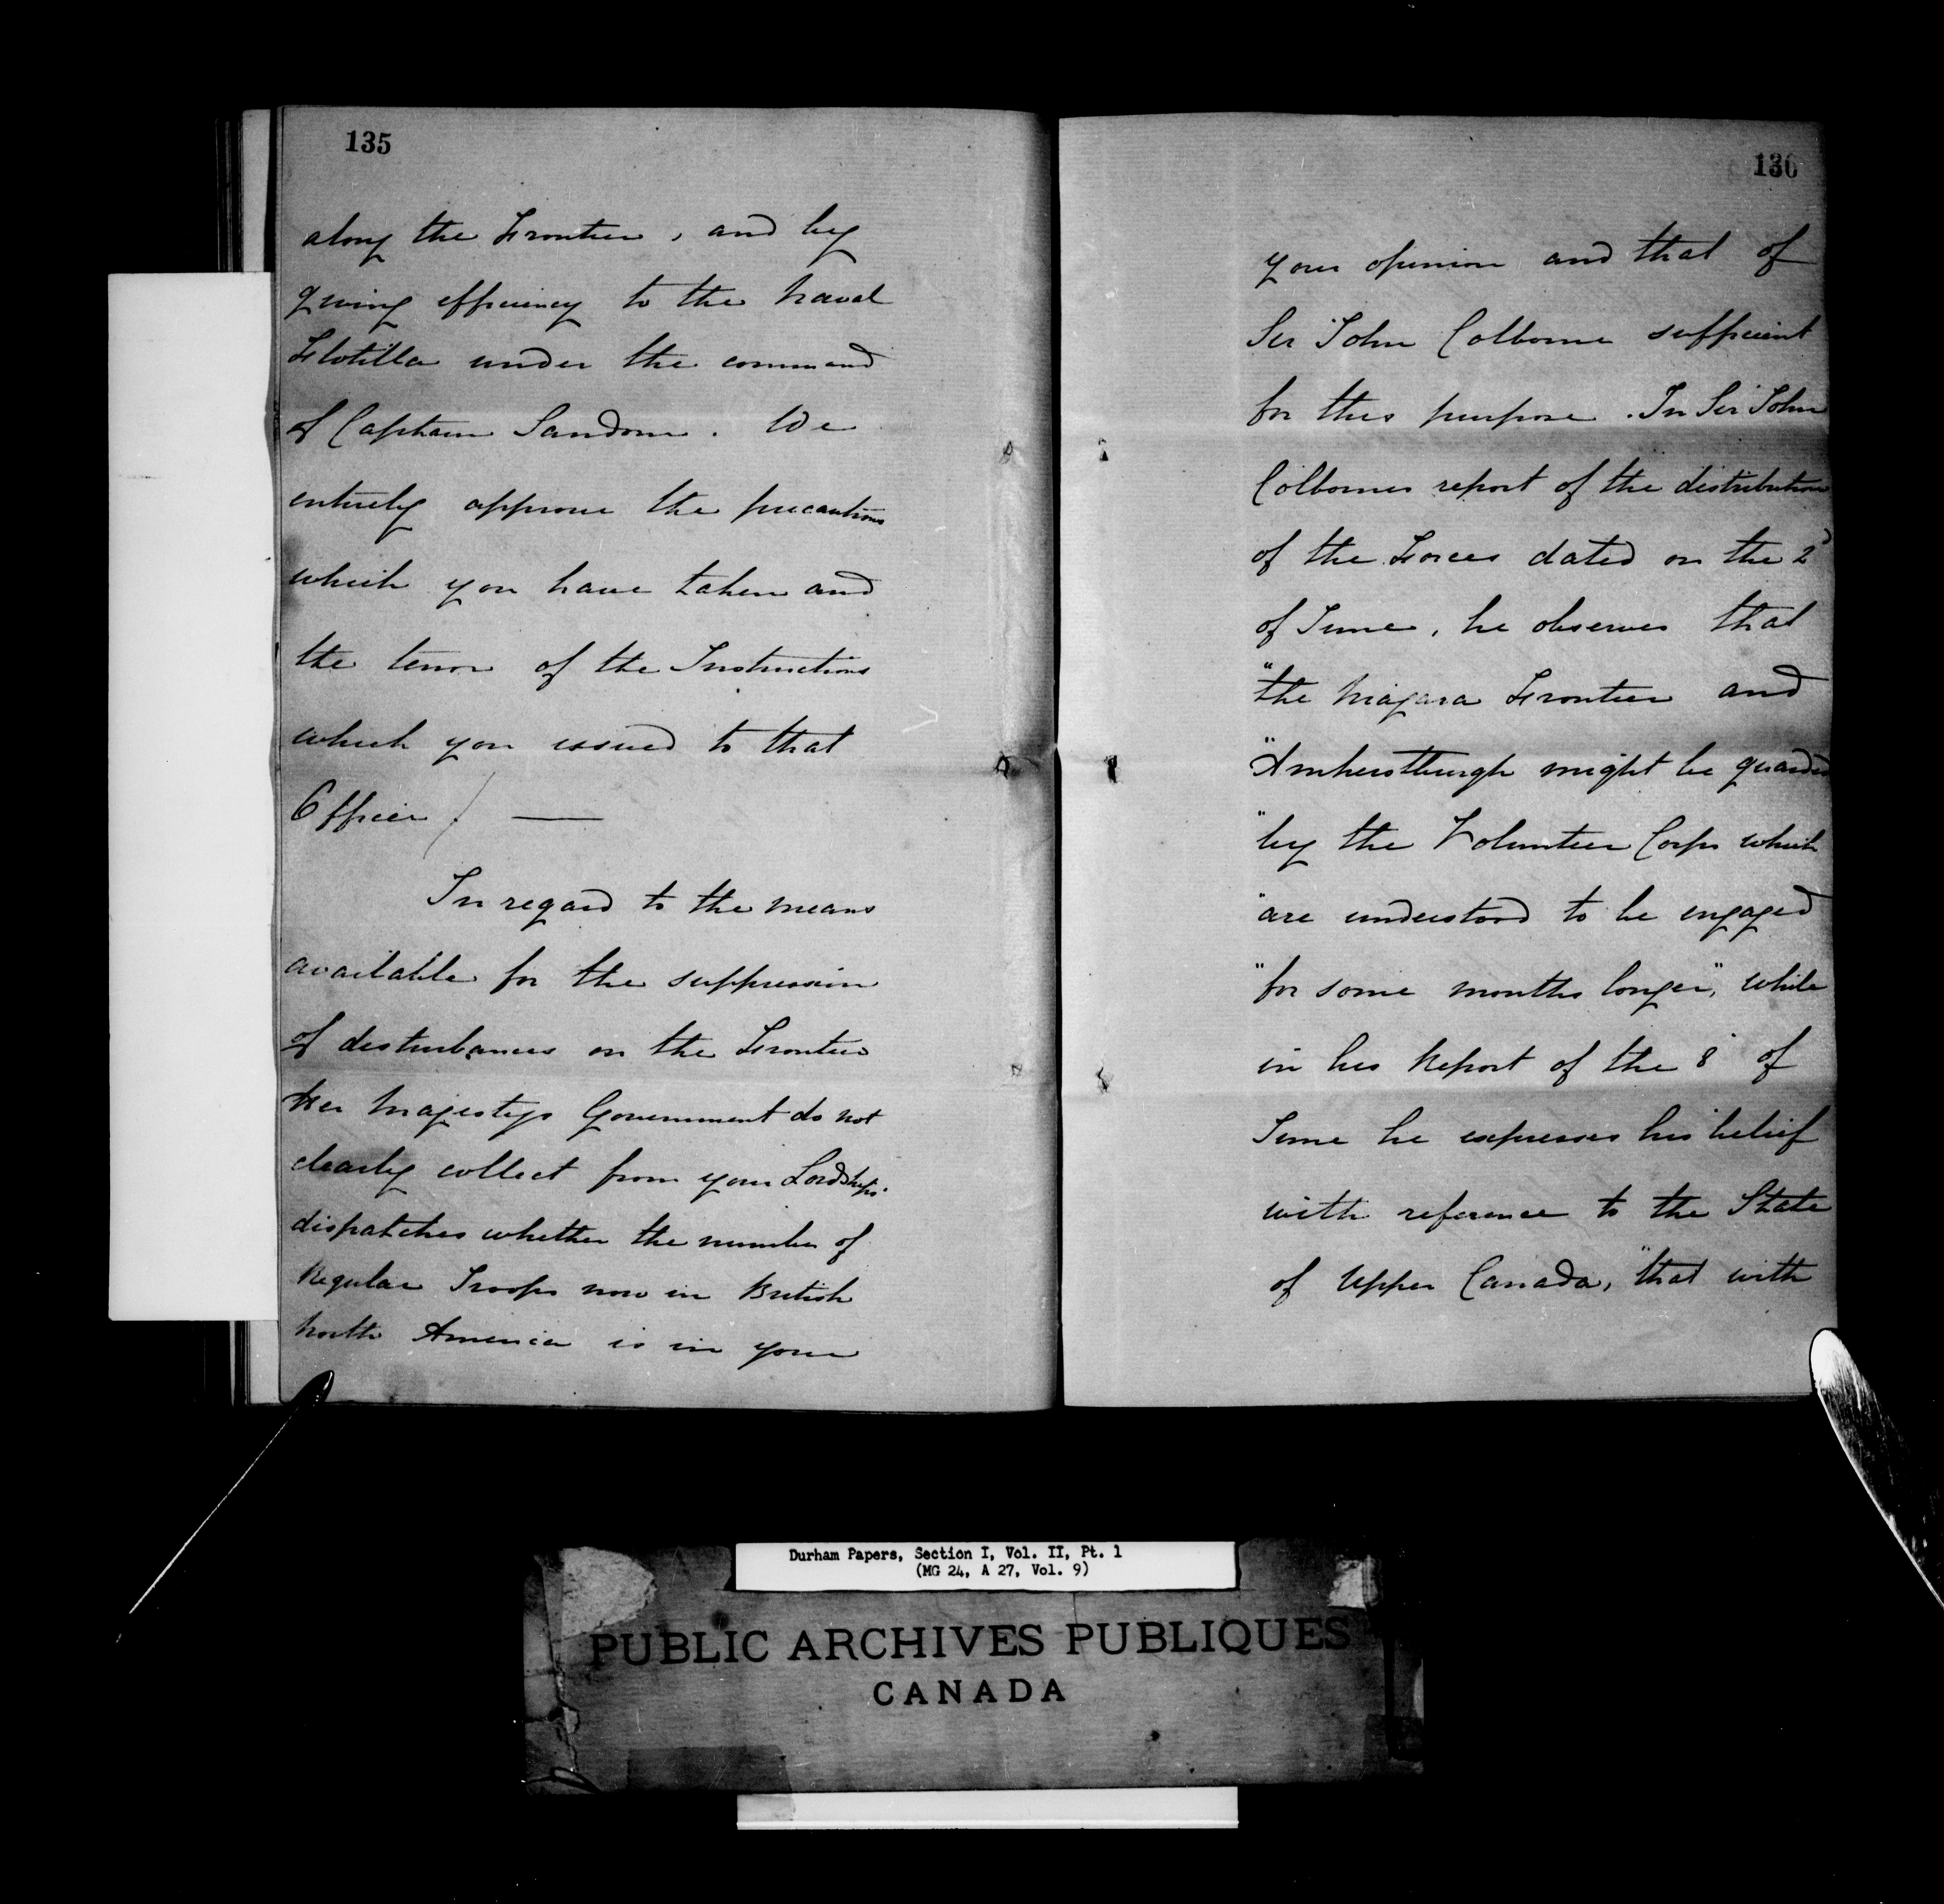 135
along the Frontier, and by
giving efficiency to the Naval
Flotilla under the command
of Captain Sandom. We
entirely approve the precautions
which you have taken and
the tenor of the Instructions
which you issued to that
Officer. —
In regard to the means
available for the suppression
of disturbances on the Frontier
Her Majestys Government do not
clearly collect from your Lordships'
dispatches whether the number of
Regular Troops now in British
North America is in your
136
your opinion and that of
Sir John Colborne sufficient
for this purpose. In Sir John
Colbornes report of the distribution
of the Forces dated on the 2d
of June, he observes that
"the Niagara Frontier and
"Amherstburgh might be guarded
"by the Volunteer Corps which
"are understood to be engaged
"for some months longer," while
in his Report of the 8 of
June he expresses his belief
with reference to the State
of Upper Canada, "that with
Durham Papers, Section I, Vol. II, Pt. 1
(MG 24, A 27, Vol. 9)
PUBLIC ARCHIVES PUBLIQUES
CANADA